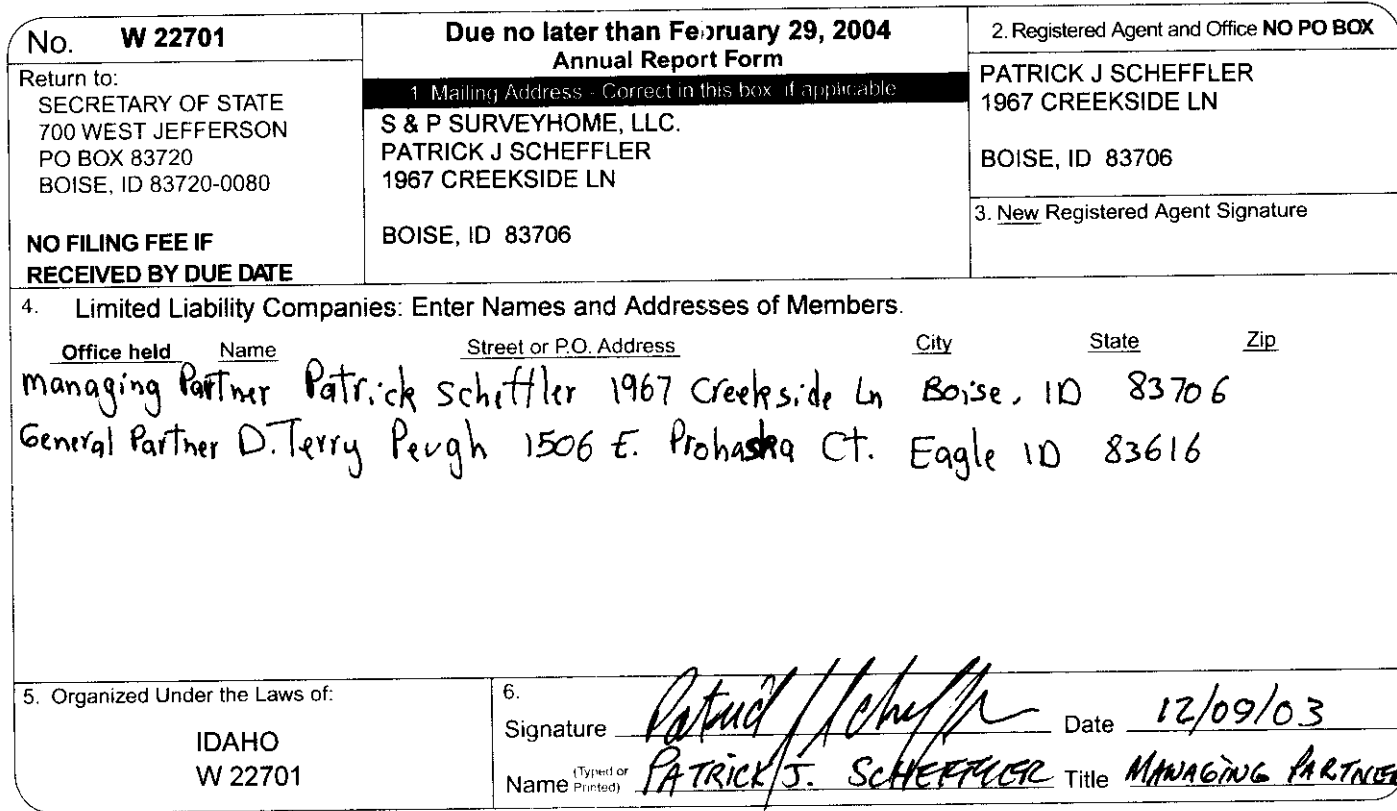 No. W 22701
Return to:
SECRETARY OF STATE
700 WEST JEFFERSON
PO BOX 83720
BOISE, ID 83720-0080
NO FILING FEE IF
RECEIVED BY DUE DATE
Due no later than February 29, 2004
Annual Report Form
1. Mailing Address - Correct in this box if applicable
S & P SURVEYHOME, LLC.
PATRICK J SCHEFFLER
1967 CREEKSIDE LN
BOISE, ID 83706
2. Registered Agent and Office NO PO BOX
PATRICK J SCHEFFLER
1967 CREEKSIDE LN
BOISE, ID 83706
3. New Registered Agent Signature
4. Limited Liability Companies: Enter Names and Addresses of Members.
Office held Name Street or P.O. Address City State Zip
Managing Partner Patrick Scheffler 1967 Creekside Ln Boise, ID 83706
General Partner D. Terry Peugh 1506 E. Prohaska Ct. Eagle ID 83616
5. Organized Under the Laws of:
IDAHO
W 22701
6.
Signature Patrick J Scheffler Date 12/09/03
Name (Typed or Printed) PATRICK J. SCHEFFLER Title MANAGING PARTNER